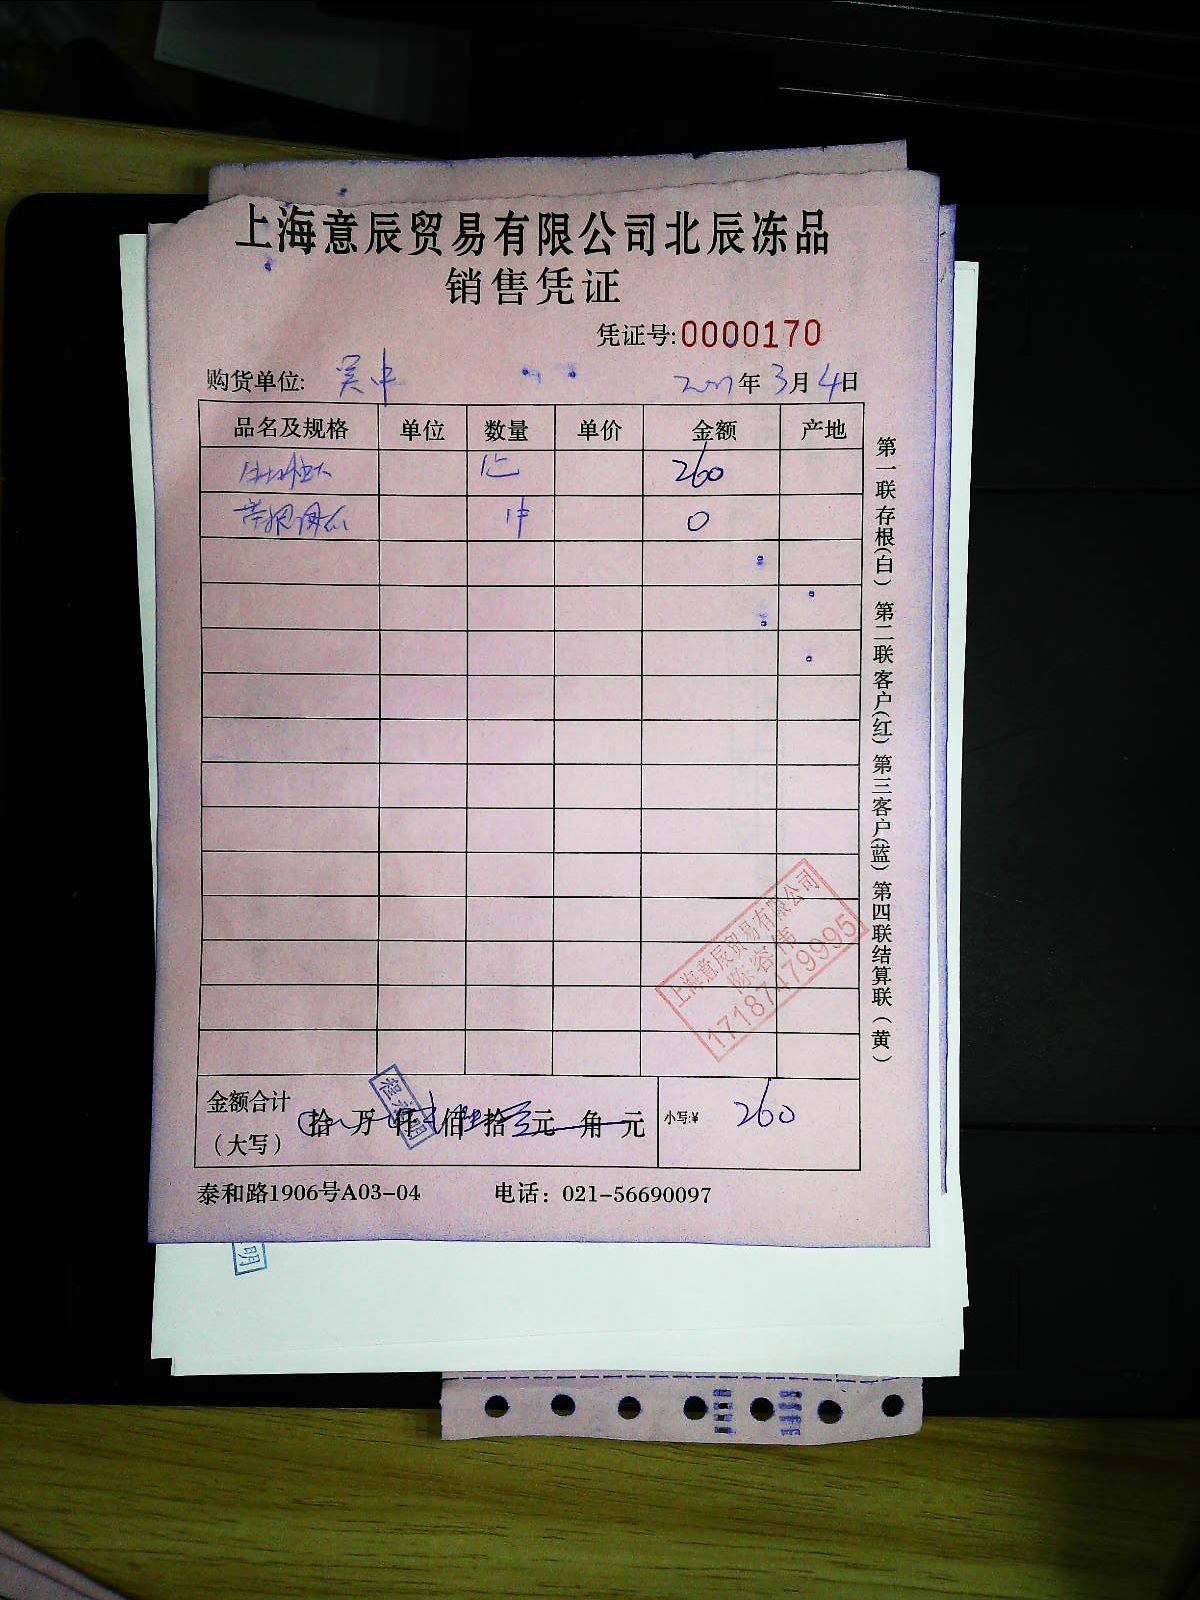 上海意辰贸易有限公司北辰冻品
销售凭证
凭证号:0000170
购货单位: 吴中 年3月4日
品名及规格 单位 数量 单价 金额 产地
260
0
上海意辰贸易有限公司
陈容伟
17187479995
金额合计
（大写）
拾 万 仟 佰 拾 元 角 元
小写:¥ 260
泰和路1906号A03-04 电话：021-56690097
第一联存根(白) 第二联客户(红) 第三客户(蓝) 第四联结算联(黄)
明